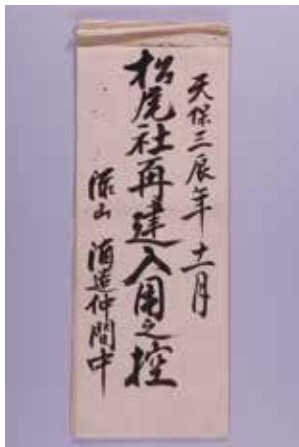 天保三辰年十一月
松尾社再建入用之控
深山 酒造仲間中